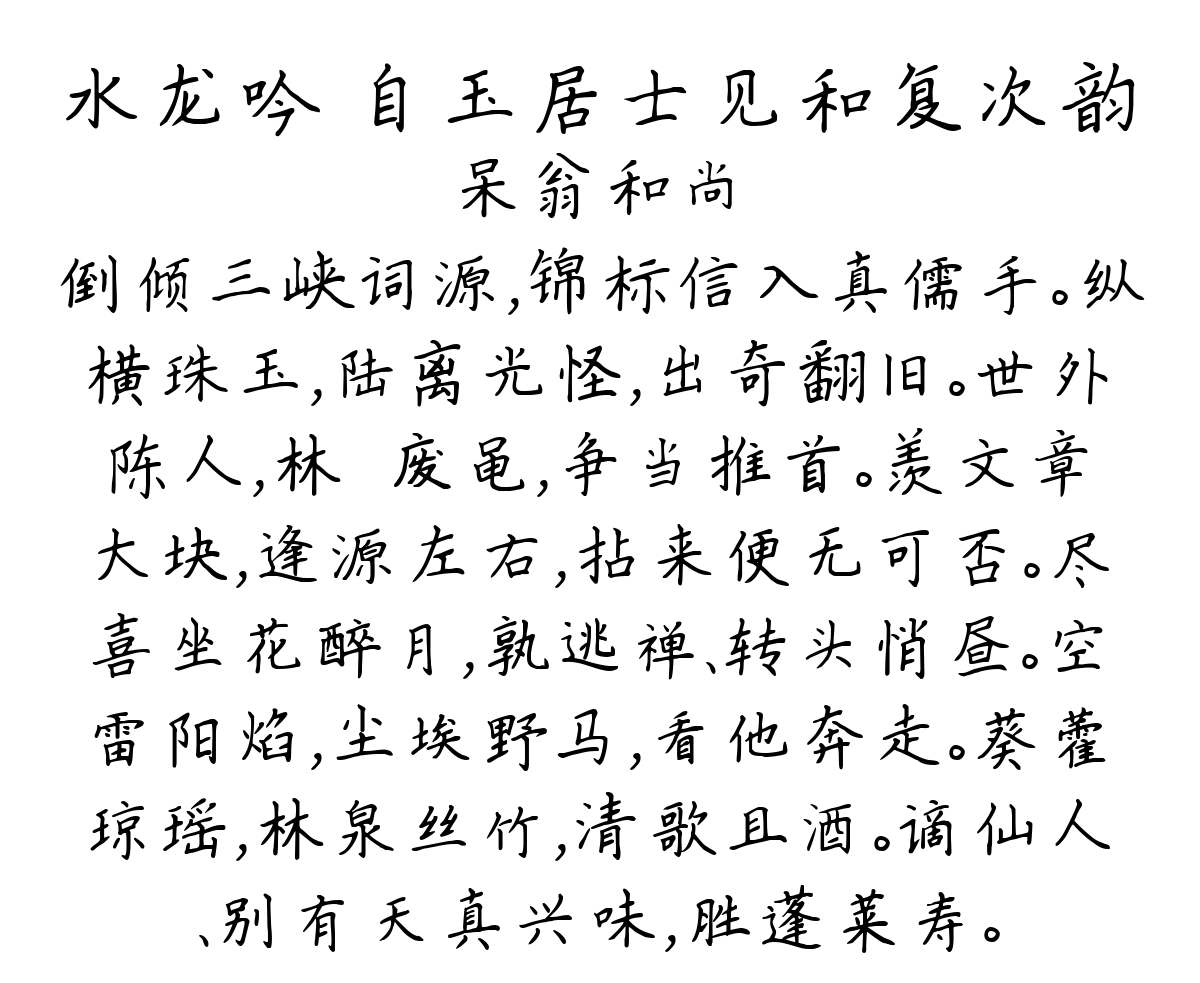 水龙吟 自玉居士见和复次韵
呆翁和尚
倒倾三峡词源,锦标信入真儒手。纵
横珠玉,陆离光怪,出奇翻旧。世外
陈人,林 废黾,争当推首。羡文章
大块,逢源左右,拈来便无可否。尽
喜坐花醉月,孰逃禅、转头悄昼。空
雷阳焰,尘埃野马,看他奔走。葵藿
琼瑶,林泉丝竹,清歌且酒。谪仙人
、别有天真兴味,胜蓬莱寿。